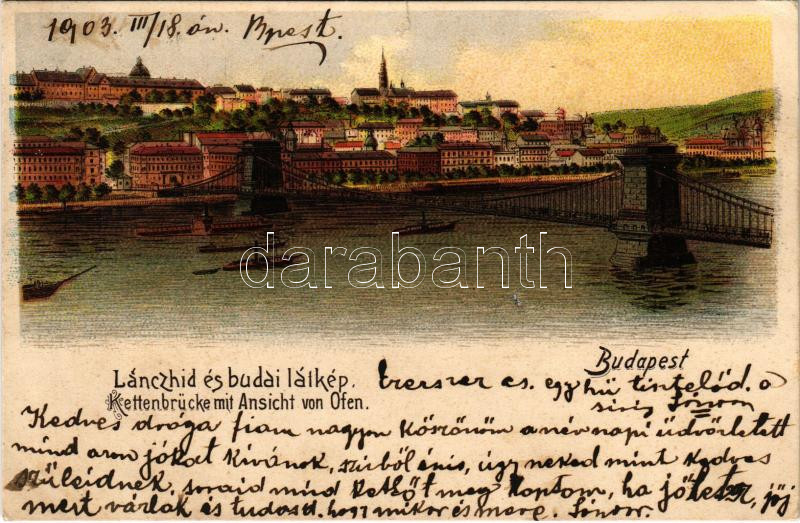 1903. III/18. án. Bpest.
darabanth.com
Budapest
Lánczhid és budai látkép.
Kettenbrücke mit Ansicht von Ofen.
Ezerszer cs. egy hű tisztelőd. a
Kedves drága fiam nagyon köszönöm a névnapi üdvözletett
mind azon jókat kívánok, szivből én is, úgy neked mint kedves
szüleidnek, soraid mind kettőt meg kaptam, ha jöhetsz, jöj
mert várlak és tudosd. hogy mikor és merre.